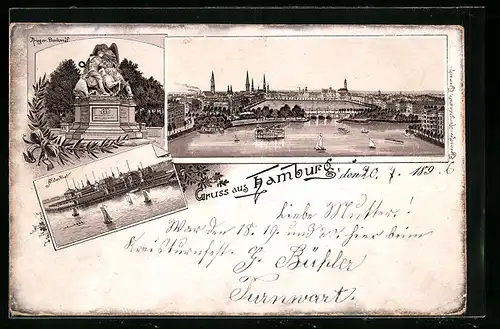 Krieger-Denkmal.
Gruss aus Hamburg, den 20. 7. 189 6
Liebe Mutter!
War den 18. 19. und 20. hier beim
Kreisturnfest. G. Büßler
Turnwart.